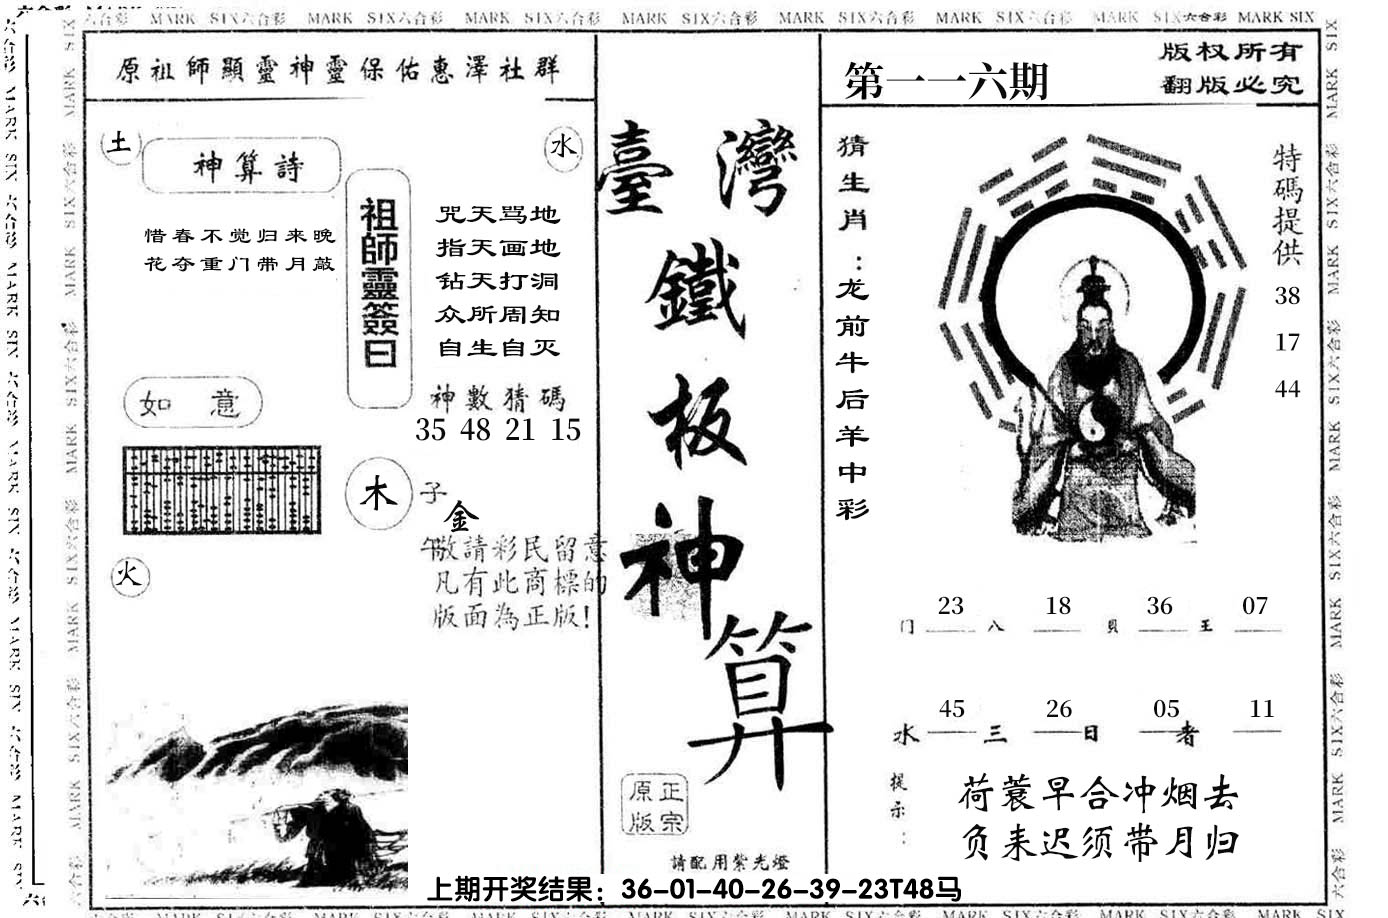 六合彩 MARK SIX六合彩 MARK SIX六合彩 MARK SIX六合彩 MARK SIX六合彩 MARK SIX六合彩 MARK SIX六合彩 MARK SIX六合彩 MARK SIX
原祖師顯靈神靈保佑惠澤社群
土
神算詩
水
惜春不觉归来晚
花夺重门带月敲
祖師靈簽曰
咒天骂地
指天画地
钻天打洞
众所周知
自生自灭
神數猜碼
35 48 21 15
如意
木
子
金
午
敬請彩民留意
凡有此商標的
版面為正版!
火
臺灣
鐵
板
神
算
原正
版宗
請配用紫光燈
第一一六期
版权所有
翻版必究
猜生肖：龙前牛后羊中彩
特碼提供
38
17
44
门 23 八 18 貝 36 王 07
水 45 三 26 日 05 者 11
提示：
荷蓑早合冲烟去
负耒迟须带月归
上期开奖结果：36-01-40-26-39-23T48马